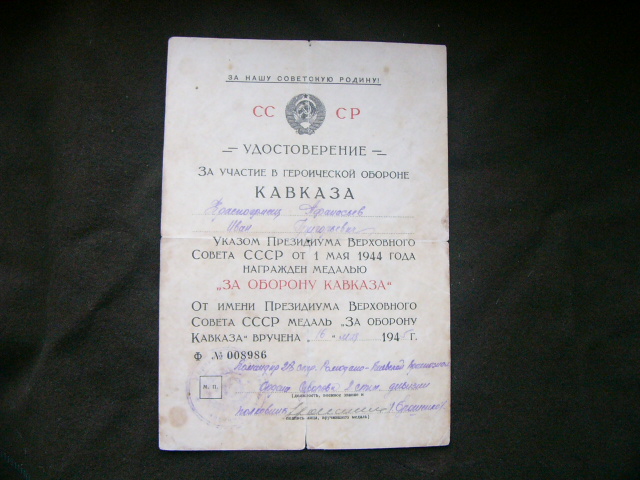 ЗА НАШУ СОВЕТСКУЮ РОДИНУ!
СС СР
УДОСТОВЕРЕНИЕ
ЗА УЧАСТИЕ В ГЕРОИЧЕСКОЙ ОБОРОНЕ
КАВКАЗА
Красноармеец Афанасьев
Иван
УКАЗОМ ПРЕЗИДИУМА ВЕРХОВНОГО
СОВЕТА СССР ОТ 1 МАЯ 1944 ГОДА
НАГРАЖДЕН МЕДАЛЬЮ
„ЗА ОБОРОНУ КАВКАЗА"
ОТ ИМЕНИ ПРЕЗИДИУМА ВЕРХОВНОГО
СОВЕТА СССР МЕДАЛЬ „ЗА ОБОРОНУ
КАВКАЗА" ВРУЧЕНА „16" мая 1945 Г.
Ф № 008986
Командир
М. П.
дивизии
(должность, военное звание и
полковник
подпись лица, вручившего медаль)